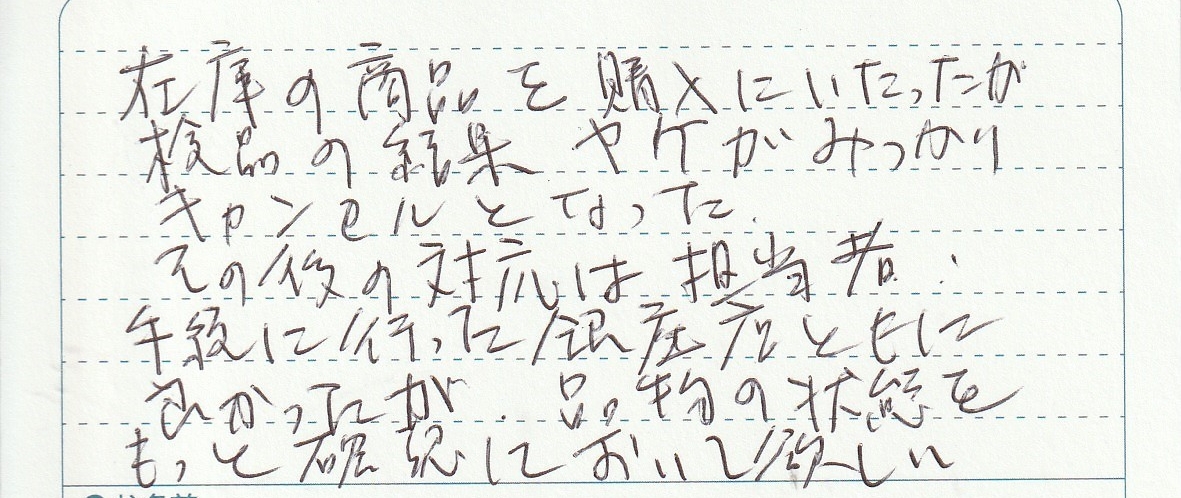 在庫の商品を購入にいたったが
検品の結果 ヤケがみつかり
キャンセルとなった.
その後の対応は担当者:
に行った銀座店ともに
良かったが. 品物の状態を
もっと確認しておいて欲しい